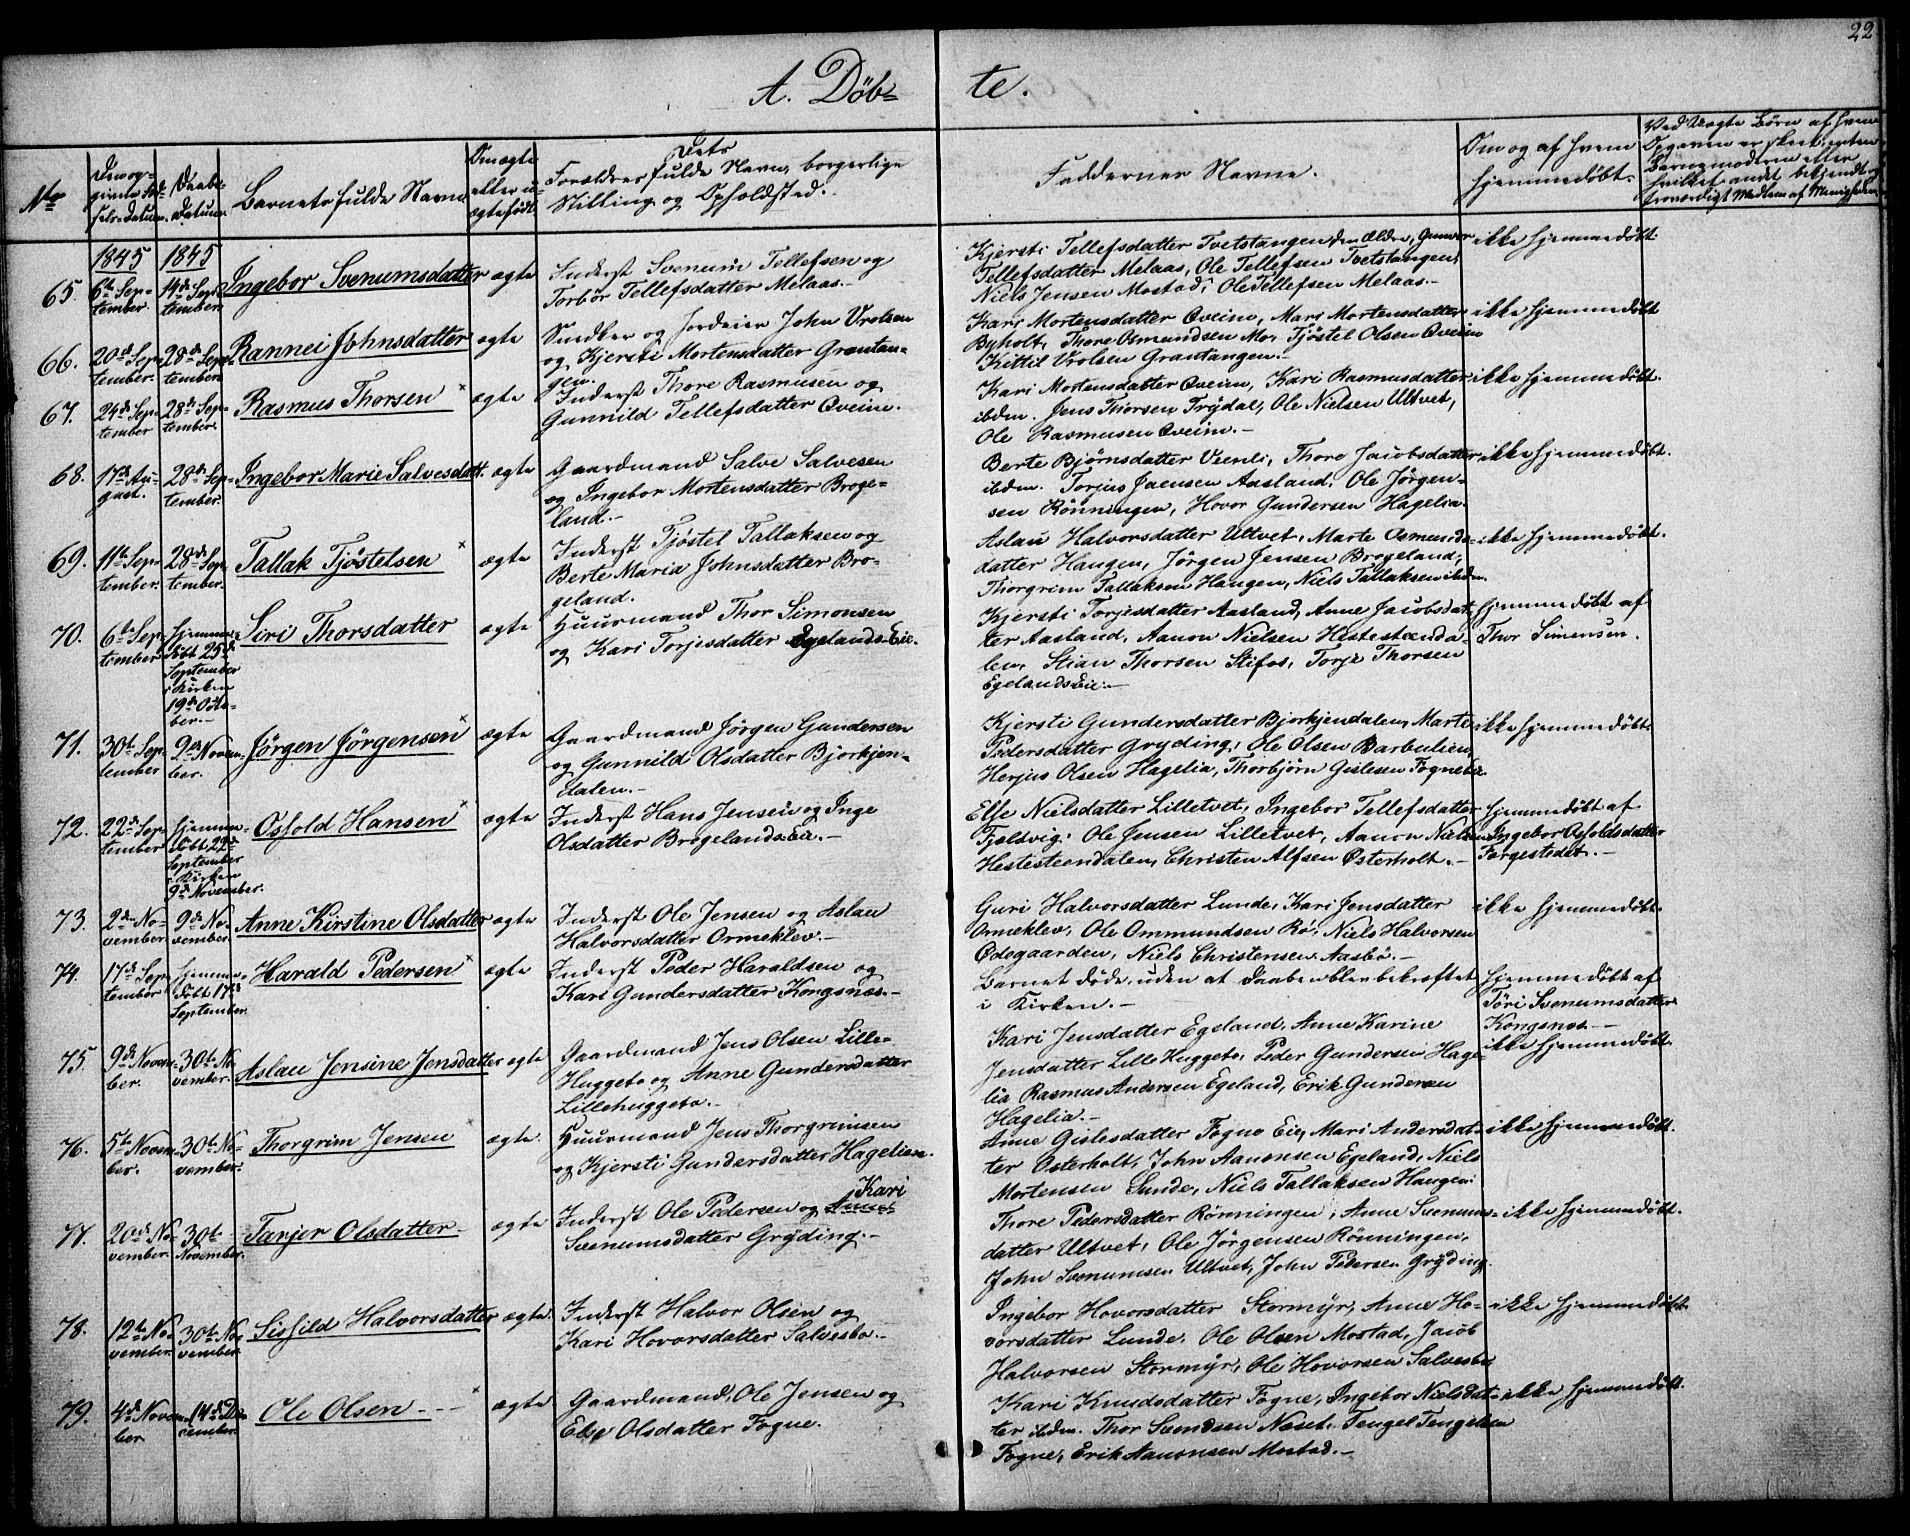 22
A. Døb- te.
No
Den opgivne Fødsels-Datum.
Daabs-Datum.
Barnets fulde Navn
Om ægte eller uægte født.
Dets Forældres fulde Navn, borgerlige Stilling og Opholdsted.
Faddernes Navne.
Om og af hvem hjemmedøbt.
Ved Uægte Børn af hvem Opgaven er skeet, enten Barnemoderen eller hvilket andet bekjendt og troværdigt Medlem af Menigheden
1845 1845
65. 6te September. 14de September. Ingebor Svenumsdatter ægte
Inderst Svenum Tellefsen og
Torbør Tellefsdatter Melaas.-
Kjersti Tellefsdatter Tvetstangen den Ældre, Gunvor
Tellefsdatter Melaas, Ole Tellefsen Tvetstangen,
Niels Jensen Mostad, Ole Tellefsen Melaas.-
ikke hjemmedøbt.
66. 20de September. 28de September. Rannei Johnsdatter ægte
Snedker og Jordeier John Vrolsen
og Kjersti Mortensdatter Grantan-
gen.
Kari Mortensdatter Oveim, Mari Mortensdatter
Byholt, Thore Osmundsen Mo, Tjøstel Olsen Oveim
Kittil Vrolsen Grantangen.-
ikke hjemmedøbt
67. 24de September 28de September. Rasmus Thorsen ægte
Inderst Thore Rasmusen og
Gunnild Tellefsdatter Oveim.
Kari Mortensdatter Oveim, Kari Rasmusdatter
ibdm. Jens Thorsen Trydal, Ole Nielsen Ultvet,
Ole Rasmusen Oveim.-
ikke hjemmedøbt.
68. 17de August. 28de September. Ingebor Marie Salvesdatt. ægte
Gaardmand Salve Salvesen
og Ingebor Mortensdatter Broge-
land.-
Berte Bjørnsdatter Veenli, Thore Jacobsdatter
ibdm. Torjus Jensen Aasland, Ole Jørgen-
sen Rønningen, Hovor Gundersen Hagelia.
ikke hjemmedøbt.
69. 11te September. 28de September. Tallak Tjøstelsen ægte
Inderst Tjøstel Tallaksen og
Berte Maria Johnsdatter Bro-
geland.
Aslau Halvorsdatter Ultvet, Marte Osmunds-
datter Haugen, Jørgen Jensen Brogeland,
Thorgrim Tallaksen Haugen, Niels Tallaksen ibdm.
ikke hjemmedøbt.
70. 6te September hjemmedøbt 25de September i Kirken 19de October.- Siri Thorsdatter ægte
Huusmand Thor Simonsen
og Kari Torjesdatter Egelands Eie.
Kjersti Torjesdatter Aasland, Anne Jacobsdat-
ter Aasland, Aanon Nielsen Hesteteenda-
len, Stian Thorsen Stifos, Torje Thorsen
Egelands Eie.-
hjemmedøbt af
Thor Simensen.
71. 30te September 9de November. Jørgen Jørgensen ægte
Gaardmand Jørgen Gundersen
og Gunnild Olsdatter Bjorkjen-
dalen.-
Kjersti Gundersdatter Bjorkjendalen, Marte
Pedersdatter Gryding, Ole Olsen Barbulien,
Herjus Olsen Hagelia, Thorbjørn Gislesen Fogne
ikke hjemmedøbt.
72. 22de September hjemmedøbt 29de September i Kirken 9de November. Osfold Hansen ægte
Inderst Hans Jensen og Inge
Olsdatter Brogelands Eie.-
Else Nielsdatter Lilletvet, Ingebor Tellefsdatter
Fjeldvig, Ole Jensen Lilletvet, Aanon Nielsen
Hestesteendalen, Christen Alfsen Østerholt.-
hjemmedøbt af
Ingebor Osfoldsdatter
Fargestedet.-
73. 2den November. 9de November. Anne Kirstine Olsdatter ægte
Inderst Ole Jensen og Aslau
Halvorsdatter Ormeklev.-
Guri Halvorsdatter Lunde, Kari Jensdatter
Ormeklev, Ole Ommundsen Rø, Niels Halvorsen
Ødegaarden, Niels Christensen Aasbø.-
ikke hjemmedøbt.
74. 17de September hjemmedøbt 17de September. Harald Pedersen ægte
Inderst Peder Haraldsen og
Kari Gundersdatter Kongsnæs.-
Barnet døde, uden at Daaben blev bekræftet
i Kirken.-
hjemmedøbt af
Tøri Svenumsdatter
Kongsnæs.-
75. 9de November. 30te November. Aslau Jensine Jensdatter ægte
Gaardmand Jens Olsen Lille-
Huggebo og Anne Gundersdatter
Lillehuggebo.-
Kari Jensdatter Egeland, Anne Karine
Jensdatter Lille Huggebo, Peder Gundersen Hage-
lia Rasmus Andersen Egeland, Erik Gundersen
Hagelia.-
ikke hjemmedøbt.
76. 5te November. 30te November. Thorgrim Jensen ægte.
Huusmand Jens Thorgrimsen
og Kjersti Gundersdatter Hagelien.
Anne Gislesdatter Fogne Eie, Mari Andersdat-
ter Osterholt, John Aanonsen Egeland, Niels
Mortensen Sunde, Niels Tallaksen Haugen.
ikke hjemmedøbt.
77. 20de November. 30te November. Tarjer Olsdatter ægte
Inderst Ole Pedersen og Anne Kari
Svenumsdatter Gryding.-
Thore Pedersdatter Rønningen, Anne Svenums-
datter Ultvet, Ole Jørgensen Rønningen,
John Svenumsen Ultvet, John Pedersen Gryding.
ikke hjemmedøbt.
78. 12te November. 30te November. Sissild Halvorsdatter ægte.
Inderst Halvor Olsen og
Kari Hovorsdatter Salvesbo.-
Ingebor Hovorsdatter Stormyr, Anne Ho-
vorsdatter Lunde, Ole Olsen Mostad, Jacob
Halvorsen Stormyr, Ole Hovorsen Salvesbo
ikke hjemmedøbt.
79. 4de November 14de December. Ole Olsen ægte
Gaardmand Ole Jensen og
Else Olsdatter Fogne.
Kari Knudsdatter Fogne, Ingebor Nielsdat-
ter ibdm. Thor Svendsen Næset, Tengel Tengelsen
Fogne, Erik Aanonsen Mostad.-
ikke hjemmedøbt.